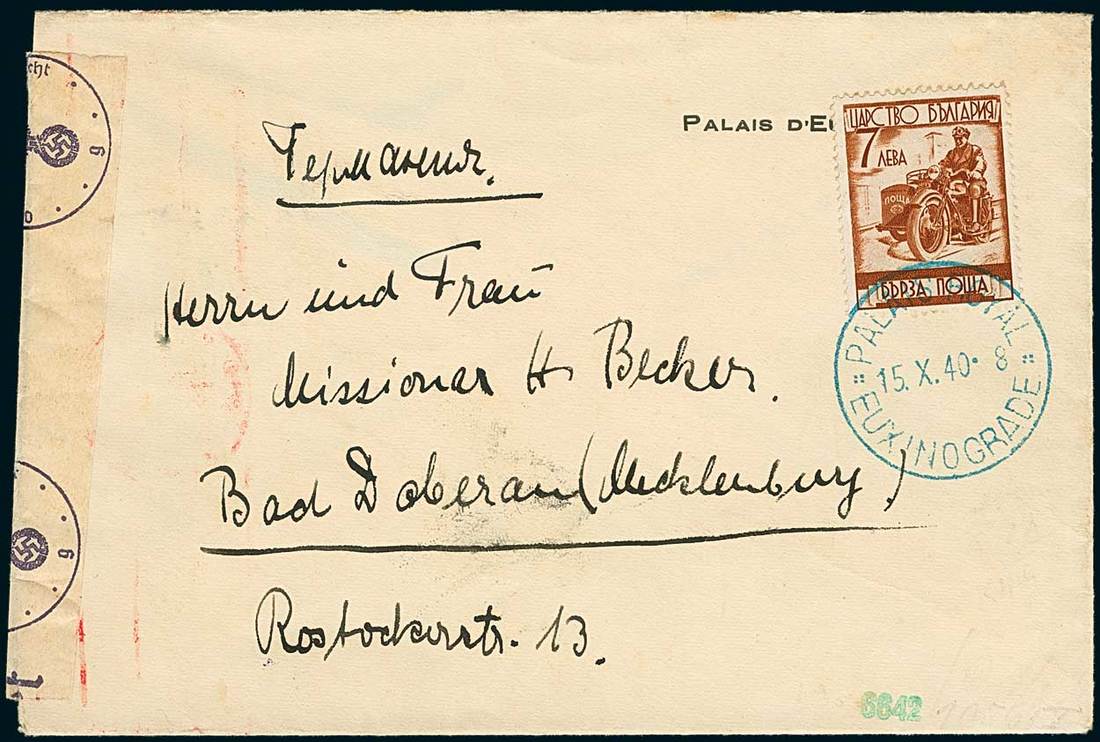 PALAIS D'EU
ЦАРСТВО БЪЛГАРИЯ
7 ЛЕВА
ПОЩА
БЪРЗА ПОЩА
Германия.
PALAIS ROYAL
15. X. 40. 8
EUXINOGRADE
Herrn und Frau
Missionar H. Becker.
Bad Doberan (Mecklenburg)
Rostockerstr. 13.
cht
g
b
g
t
6642